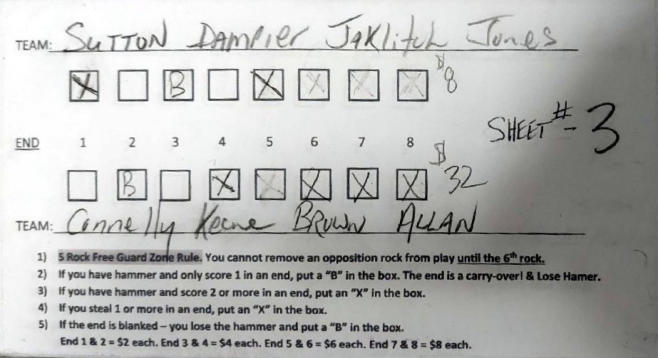 TEAM: SUTTON DAMPIER JAKlitch Jones
X B X X X X $8
END 1 2 3 4 5 6 7 8 SHEET #-3
B X X X X X $32
TEAM: Connelly Keene BROWN ALLAN
1) 5 Rock Free Guard Zone Rule. You cannot remove an opposition rock from play until the 6th rock.
2) If you have hammer and only score 1 in an end, put a "B" in the box. The end is a carry-over! & Lose Hamer.
3) If you have hammer and score 2 or more in an end, put an "X" in the box.
4) If you steal 1 or more in an end, put an "X" in the box.
5) If the end is blanked – you lose the hammer and put a "B" in the box.
End 1 & 2 = $2 each. End 3 & 4 = $4 each. End 5 & 6 = $6 each. End 7 & 8 = $8 each.